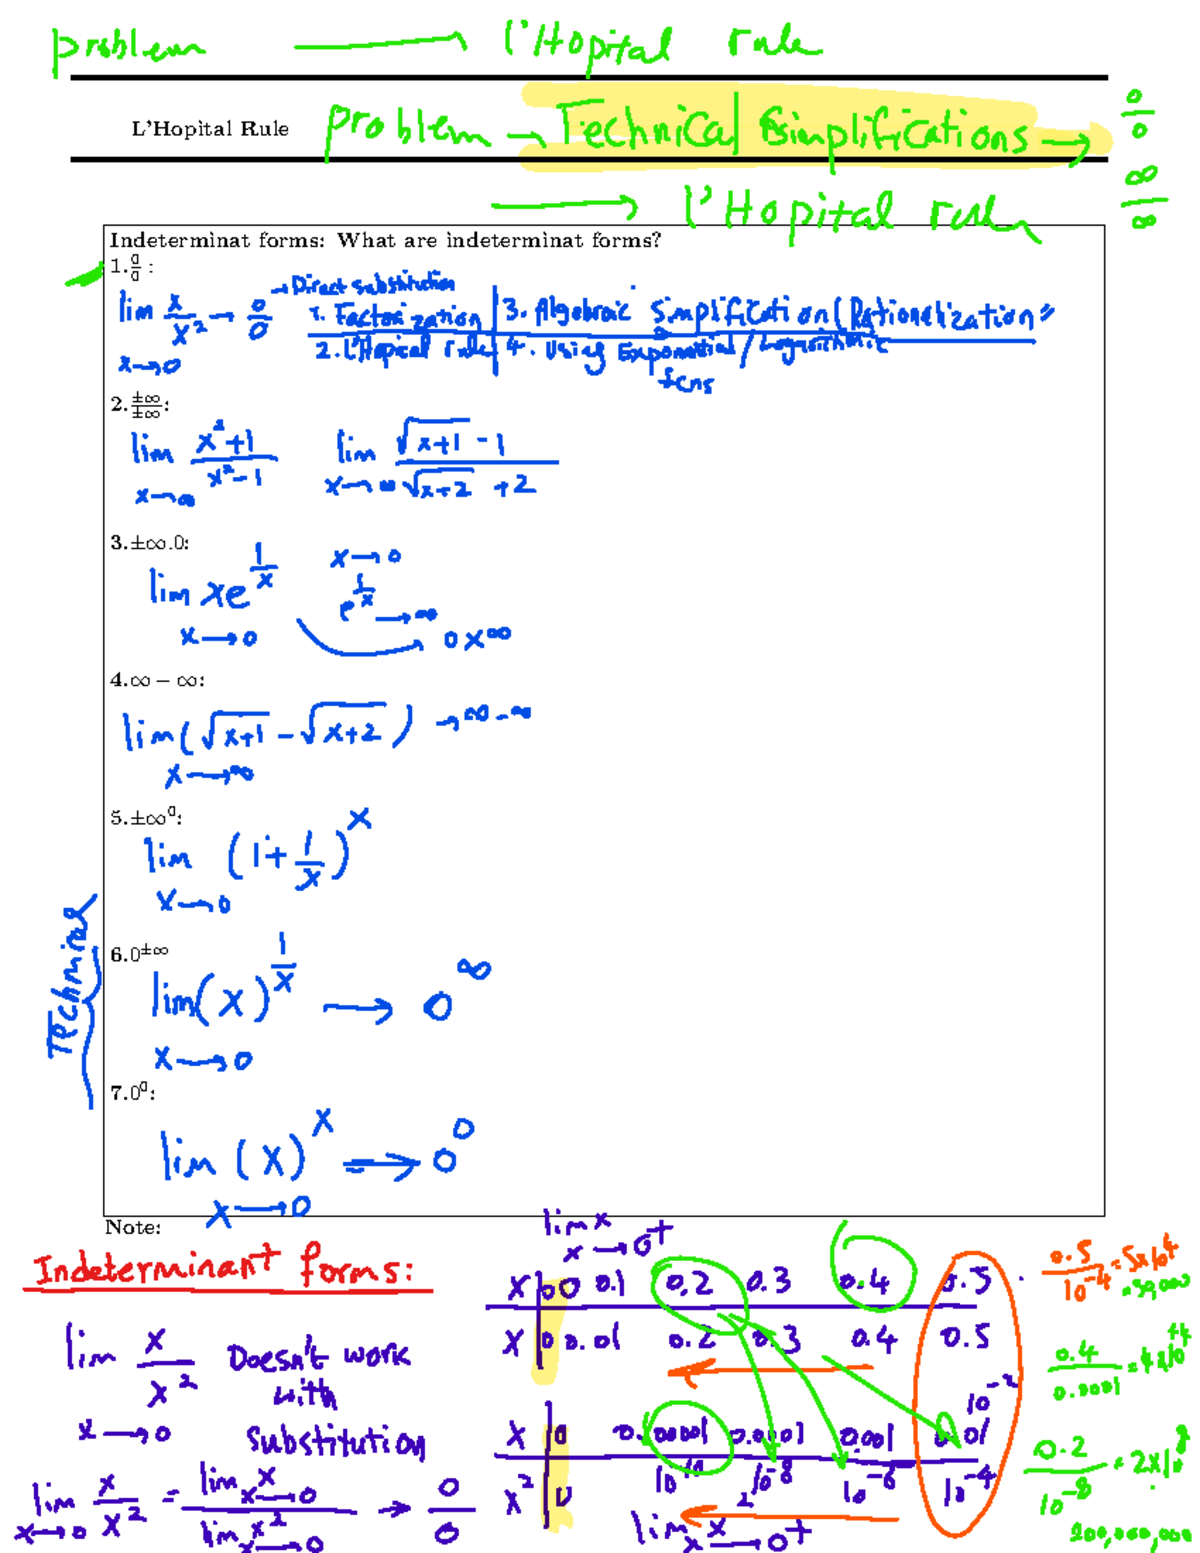 problem → l'Hopital rule
L'Hopital Rule problem → Technical Simplifications → 0/0
∞/∞
→ l'Hopital rule
Indeterminat forms: What are indeterminat forms?
1. 0/0 :
lim x/x² → 0/0 → Direct substitution
x→0
1. Factorization | 3. Algebraic Simplification (Rationalization"
2. l'Hopical rule | 4. Using Exponential / Logarithmic
fcns
2. ±∞/±∞:
lim x²+1 / x²-1
x→∞
lim √x+1 - 1 / √x+2 + 2
x→∞
3.±∞.0:
lim xe^(1/x)
x→0
x→0
e^(1/x) → ∞
0x∞
4.∞ − ∞:
lim (√x+1 - √x+2) → ∞-∞
x→∞
5.±∞⁰:
lim (1+1/x)^x
x→0
Technical
6.0^±∞
lim (x)^(1/x) → 0^∞
x→0
7.0⁰:
lim (x)^x → 0⁰
x→0
Note:
Indeterminant forms:
lim x/x² Doesn't work
with
x→0 substitution
lim x→0 x/x² = lim x→0 x / lim x→0 x² → 0/0
lim x
x→0+
x | 0 0.1 0.2 0.3 0.4 0.5
x | 0 0.01 0.2 0.3 0.4 0.5
10^-2
x | 0 0.00001 0.0001 0.001 0.01
x² | 0 10^-10 10^-8 10^-6 10^-4
lim x²
x→0+
0.5/10^-4 = 5x10^4
=50,000
0.4/0.0001 = 4x10^+4
0.2/10^-8 = 2x10^8
200,000,000